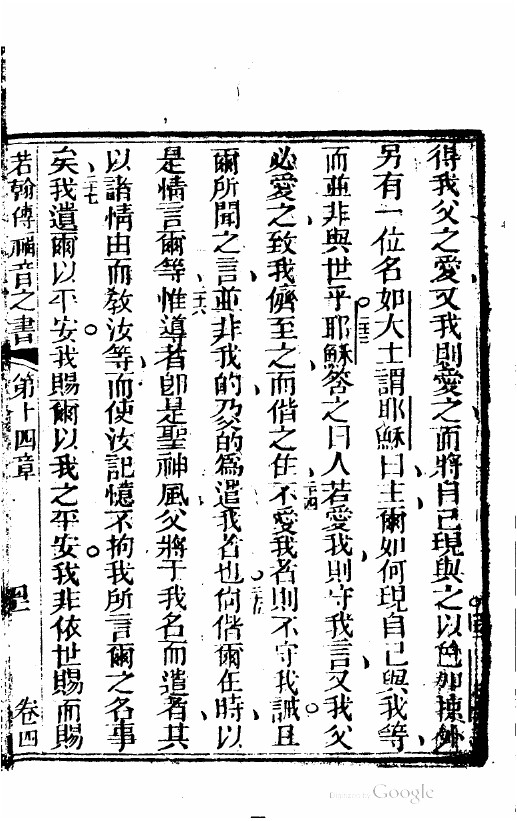 得我父之愛又我則愛之而將自己現與之以色加掠外
另有一位名如大士謂耶穌曰主爾如何現自己與我等
而並非與世乎二三耶穌答之曰人若愛我則守我言又我父
必愛之致我儕至之而偕之住二四不愛我者則不守我誡且
爾所聞之言並非我的乃父的為遣我者也二五尚偕爾在時以
是情言爾等二六惟導者即是聖神風父將于我名而遣者其
以諸情由而敎汝等而使汝記憶不拘我所言爾之各事
矣二七我遺爾以平安我賜爾以我之平安我非依世賜而賜
若翰傳福音之書 第十四章 卷四
Digitized by Google